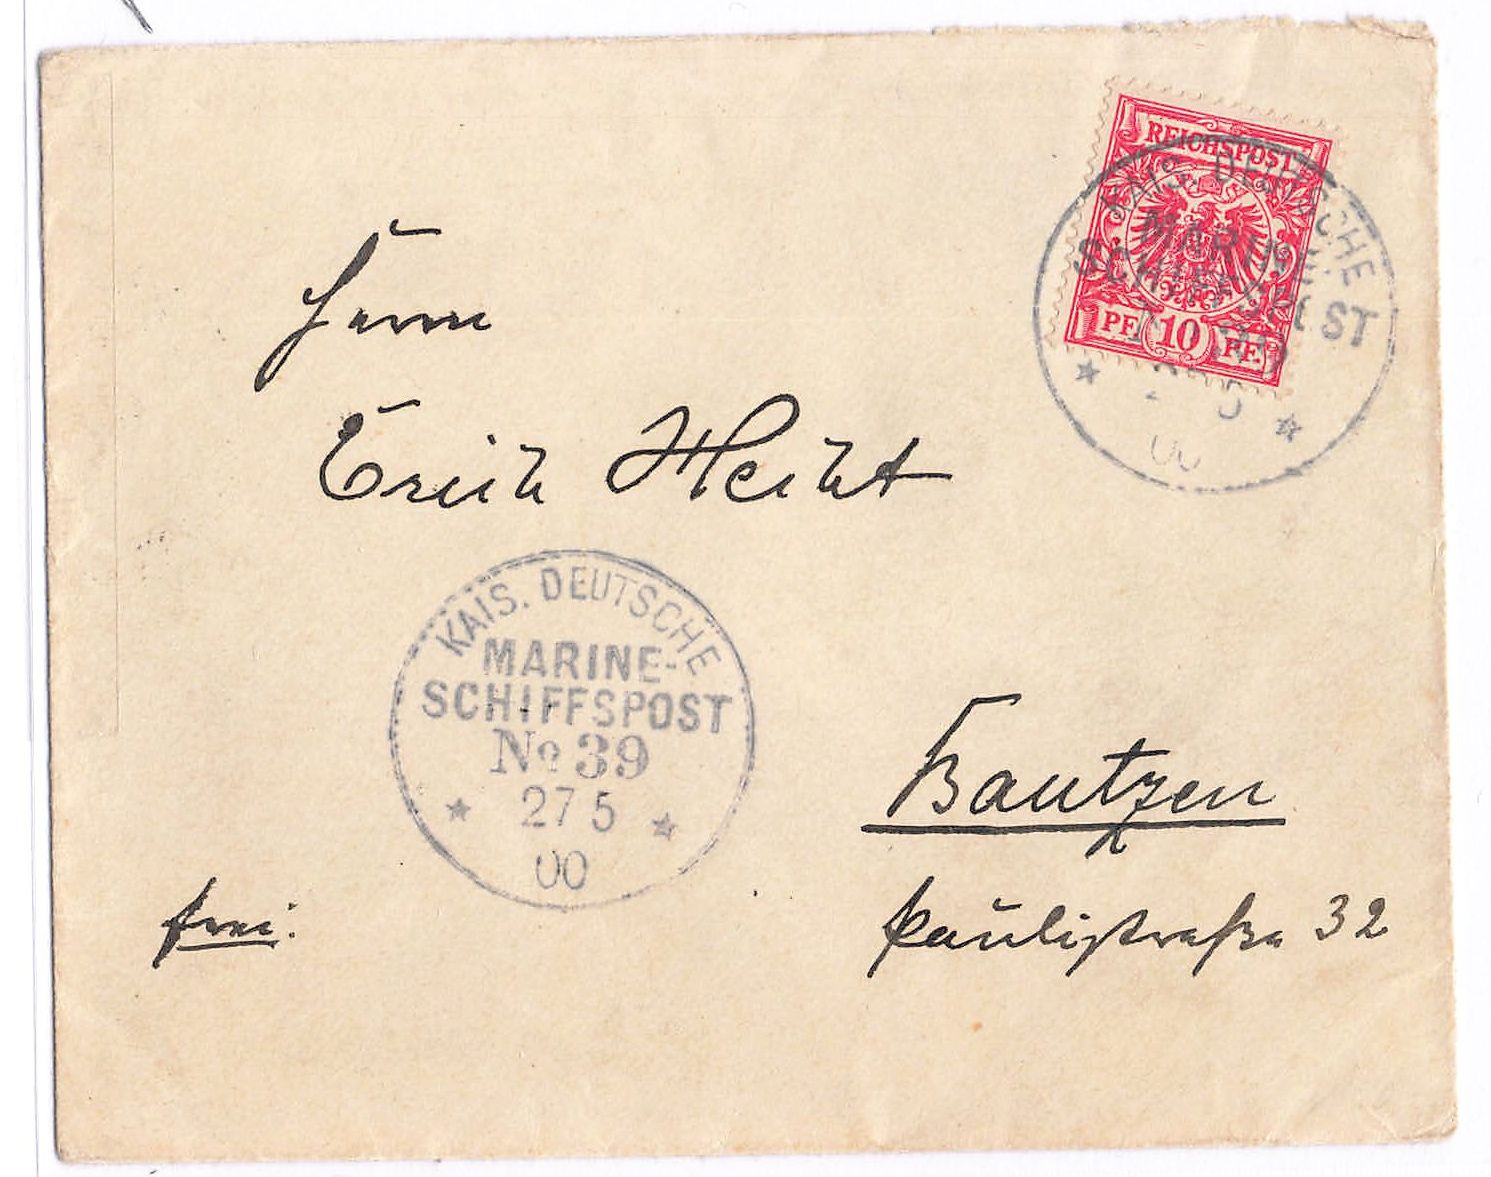 REICHSPOST
PF. 10 PF.
KAIS. DEUTSCHE
MARINE-
SCHIFFSPOST
5
00
Herrn
Erich
KAIS. DEUTSCHE
MARINE-
SCHIFFSPOST
No 39
27 5
00
Bautzen
frei.
Paulistraße 32